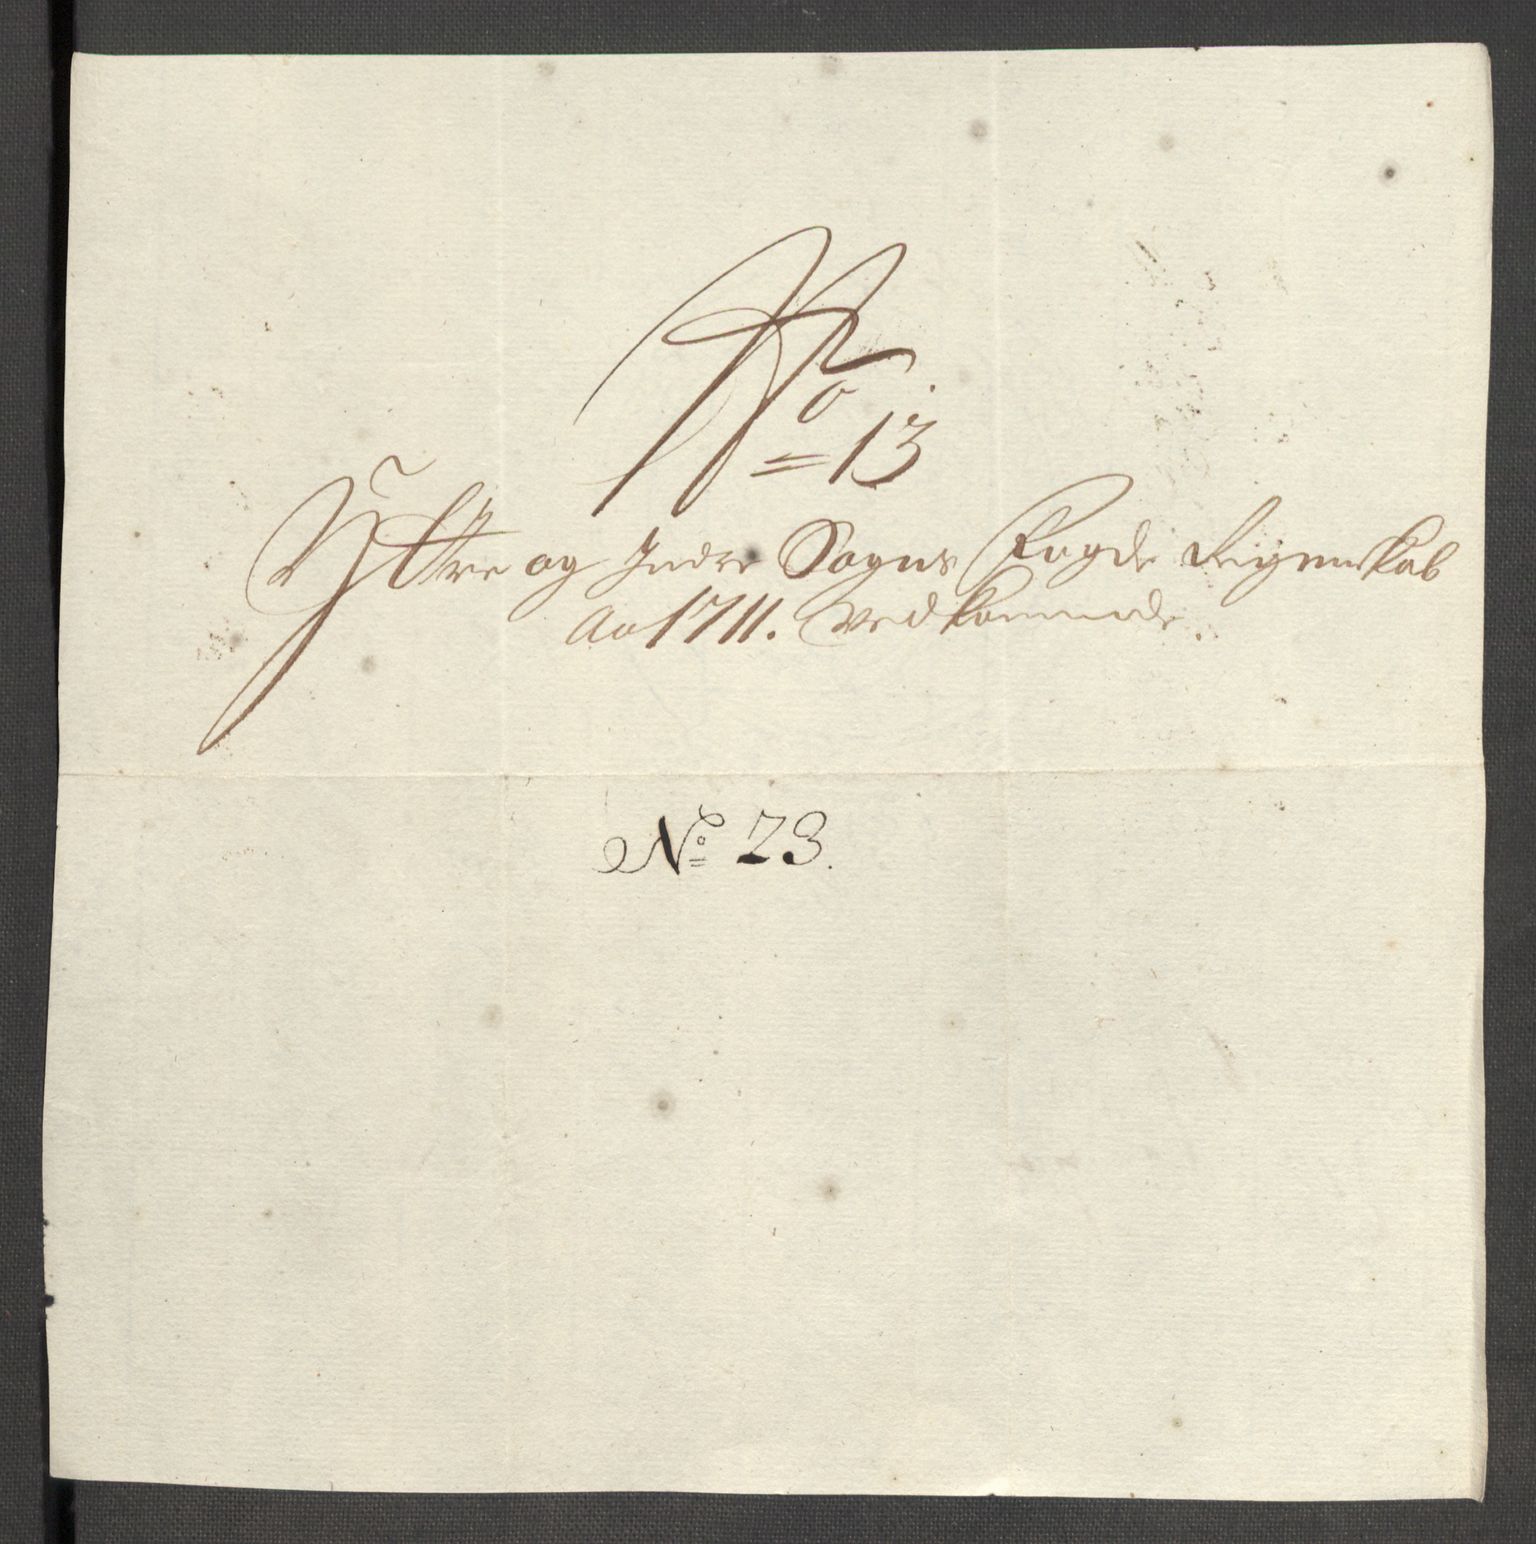 No 13
Yttre og Indre Sogns Fogde Regnskab
Ao 1711. Vedkommende.
No 23.